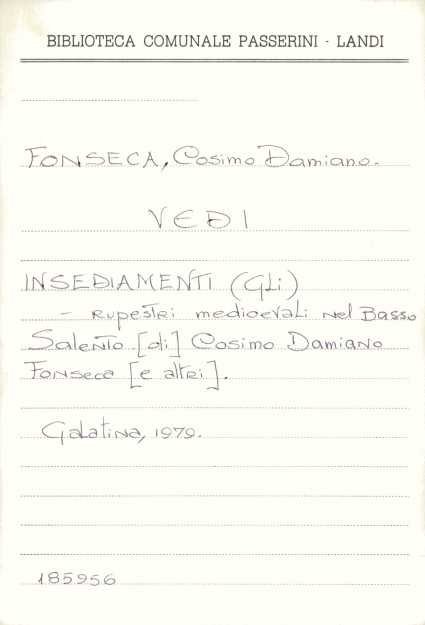 BIBLIOTECA COMUNALE PASSERINI - LANDI
FONSECA, Cosimo Damiano.
VEDI
INSEDIAMENTI (Gli)
- rupestri medioevali nel Basso
Salento [di] Cosimo Damiano
Fonseca [e altri].
Galatina, 1979.
185956